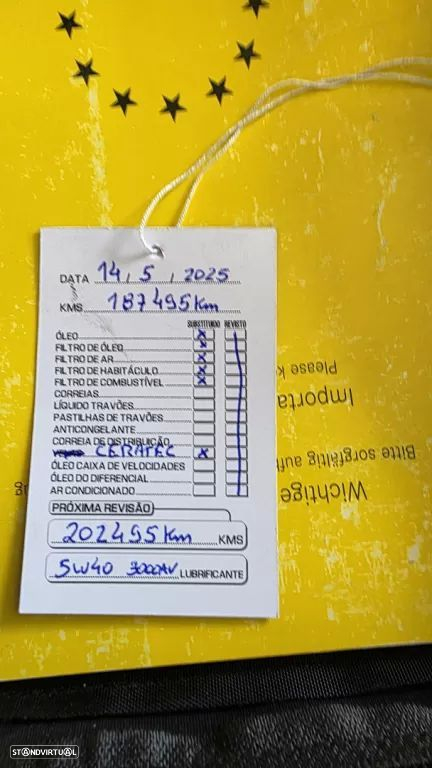 DATA 14 / 5 / 2025
KMS 187495 km
SUBSTITUIDO REVISTO
ÓLEO X
FILTRO DE ÓLEO X
FILTRO DE AR X
FILTRO DE HABITÁCULO X
FILTRO DE COMBUSTÍVEL X
CORREIAS
LÍQUIDO TRAVÕES
PASTILHAS DE TRAVÕES
ANTICONGELANTE
CORREIA DE DISTRIBUIÇÃO
CERATEC X
ÓLEO CAIXA DE VELOCIDADES
ÓLEO DO DIFERENCIAL
AR CONDICIONADO
PRÓXIMA REVISÃO
202495 km KMS
5W40 LUBRIFICANTE
Wichtige
Bitte sorgfältig
Importa
Please k
STANDVIRTUAL